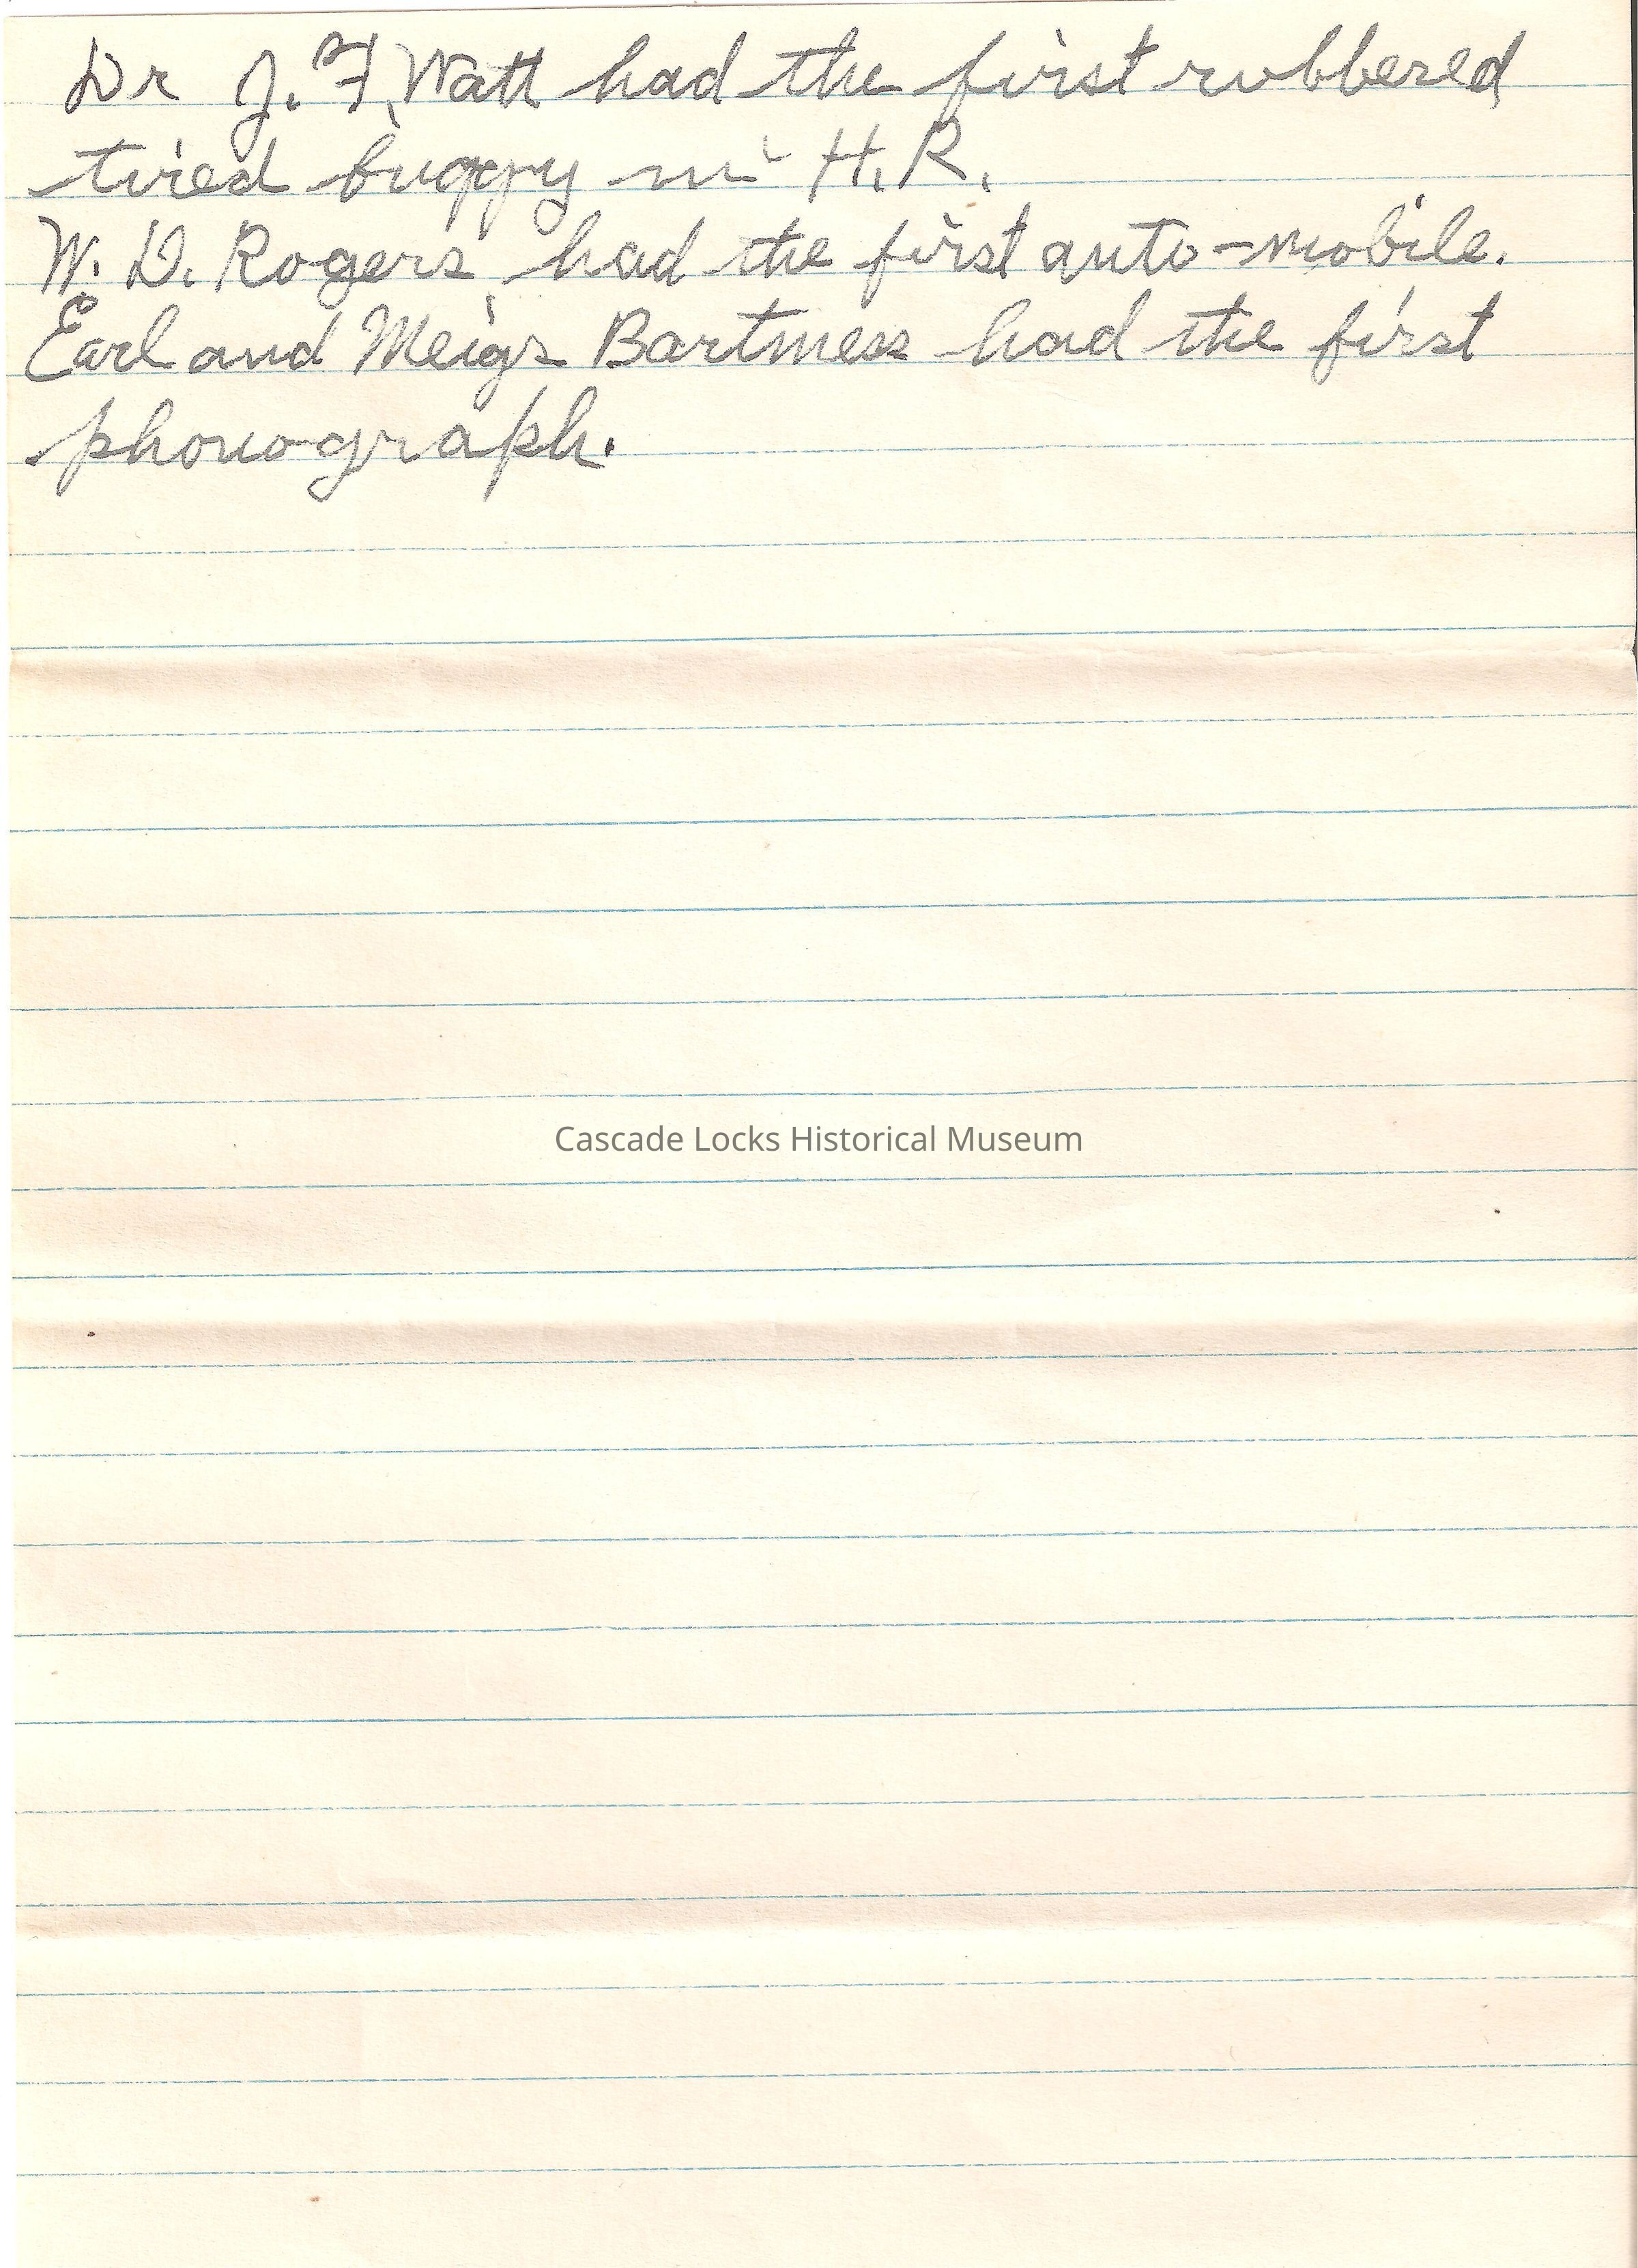 Dr J. F. Watt had the first rubbered
tired buggy in H.R.
W. D. Rogers had the first auto-mobile.
Earl and Meigs Bartmess had the first
phonograph.
Cascade Locks Historical Museum